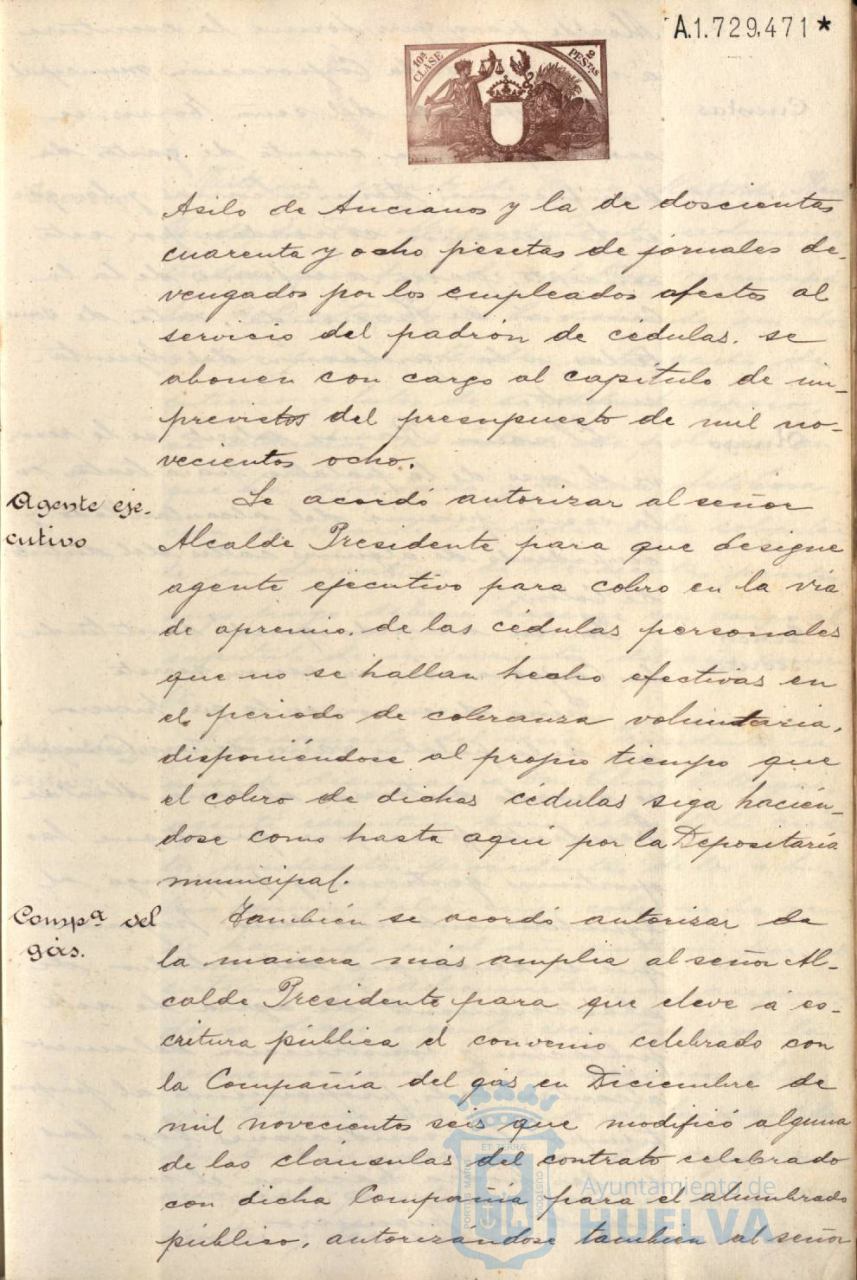 A.1.729,471*
10ª CLASE
2 PESETAS
Asilo de Ancianos y la de doscientas
cuarenta y ocho pesetas de jornales de-
vengados por los empleados afectos al
servicio del padrón de cédulas. se
abonen con cargo al capitulo de im-
previstos del presupuesto de mil no-
vecientos ocho.
Agente eje-
cutivo
Se acordó autorizar al señor
Alcalde Presidente para que designe
agente ejecutivo para cobro en la via
de apremio. de las cédulas personales
que no se hallan hecho efectivas en
el periodo de cobranza voluntaria,
disponiéndose al propio tiempo que
el cobro de dichas cédulas siga hacién-
dose como hasta aquí por la Depositaría
municipal.
Compª del
gás.
También se acordó autorizar de
la manera más amplia al señor Al-
calde Presidente para que eleve á es-
critura pública el convenio celebrado con
la Compañía del gás en Diciembre de
mil novecientos seis que modificó alguna
de las cláusulas del contrato celebrado
con dicha Compañía para el alumbrado
público, autorizándose tambien al señor
Ayuntamiento de
HUELVA